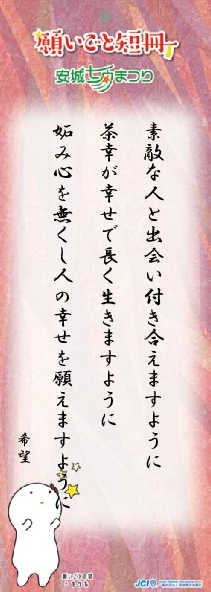 願いごと短冊
安城七夕まつり
素敵な人と出会い付き合えますように
茶幸が幸せで長く生きますように
妬み心を無くし人の幸せを願えますように
希望
願いごと短冊
JCI